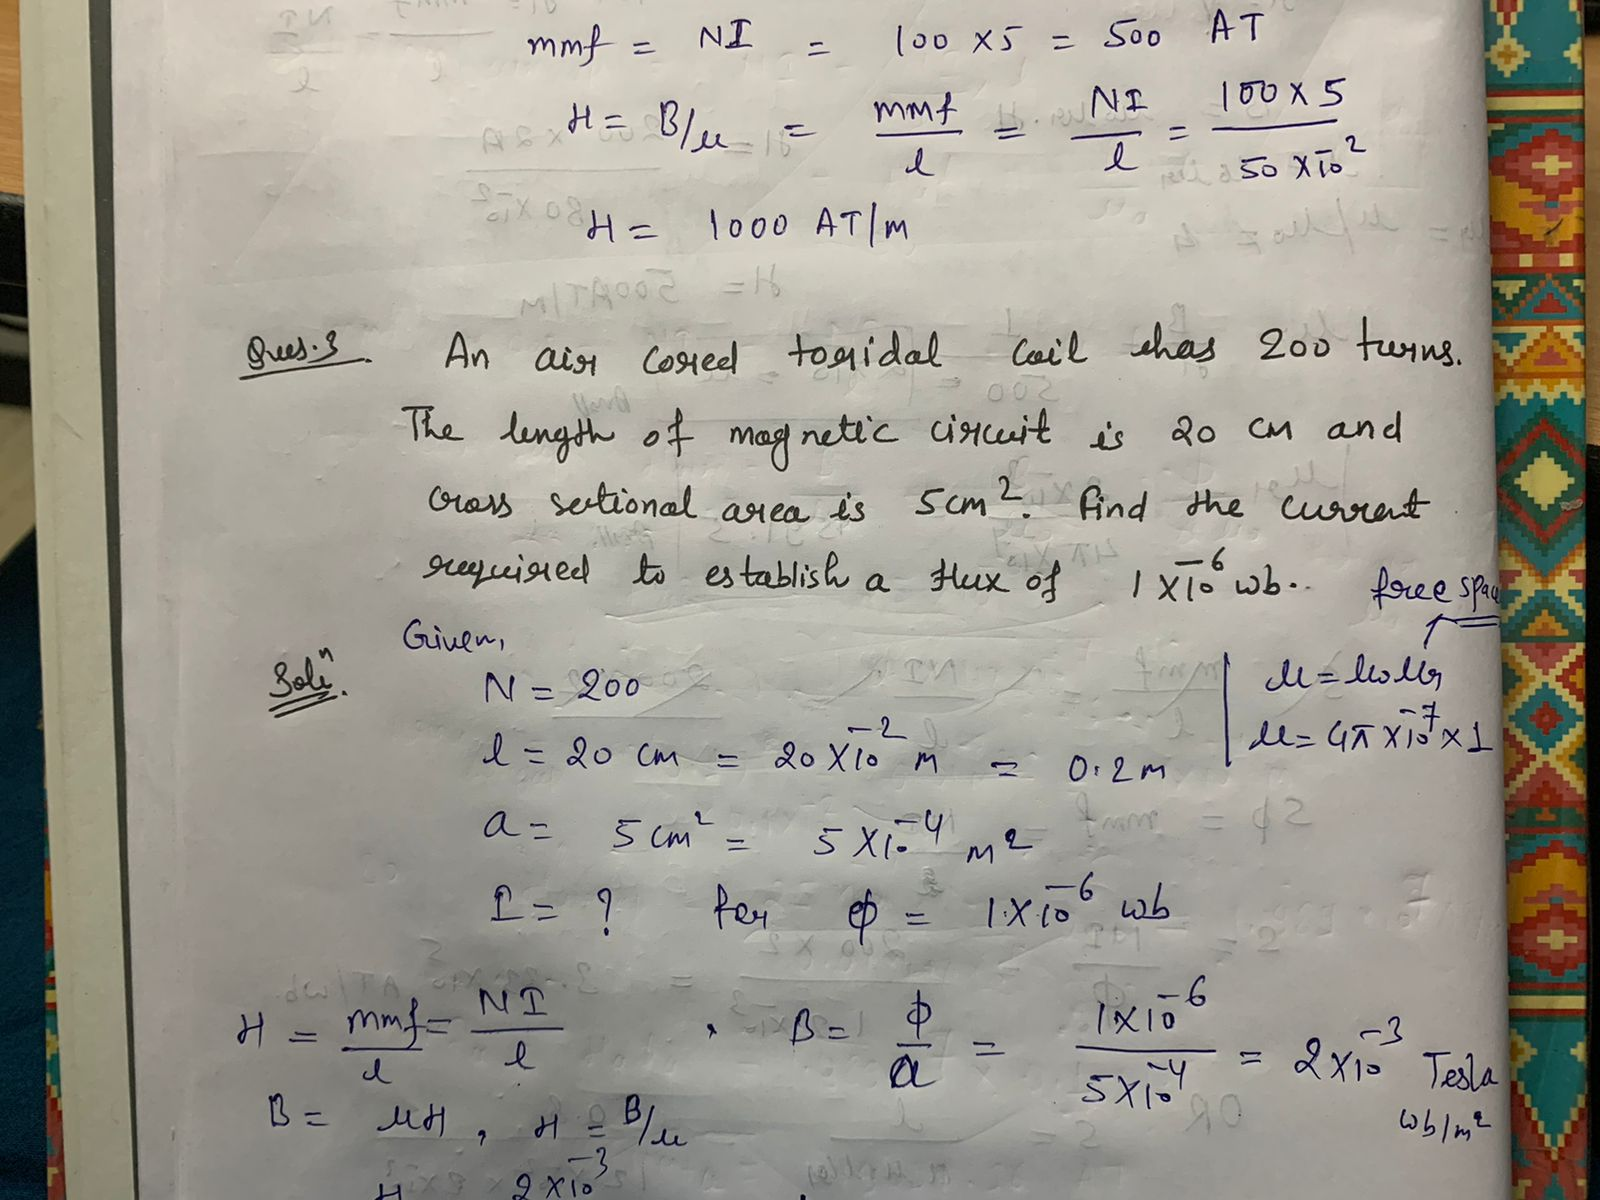 mmf = NI = 100 × 5 = 500 AT
H = B/μ = mmf/l = NI/l = 100 × 5 / 50 × 10⁻²
H = 1000 AT/m
Ques.3. An air cored toridal coil has 200 turns.
The length of magnetic circuit is 20 cm and
cross sectional area is 5cm². find the current
required to establish a flux of 1 × 10⁻⁶ wb..
free space
Given,
Solⁿ.
N = 200
μ = μ₀μr
l = 20 cm = 20 × 10⁻² m = 0.2 m
μ = 4π × 10⁻⁷ × 1
a = 5 cm² = 5 × 10⁻⁴ m²
I = ? for φ = 1 × 10⁻⁶ wb
H = mmf/l = NI/l , B = φ/a = 1×10⁻⁶ / 5×10⁻⁴ = 2×10⁻³ Tesla
wb/m²
B = μH , H = B/μ
H 2×10⁻³